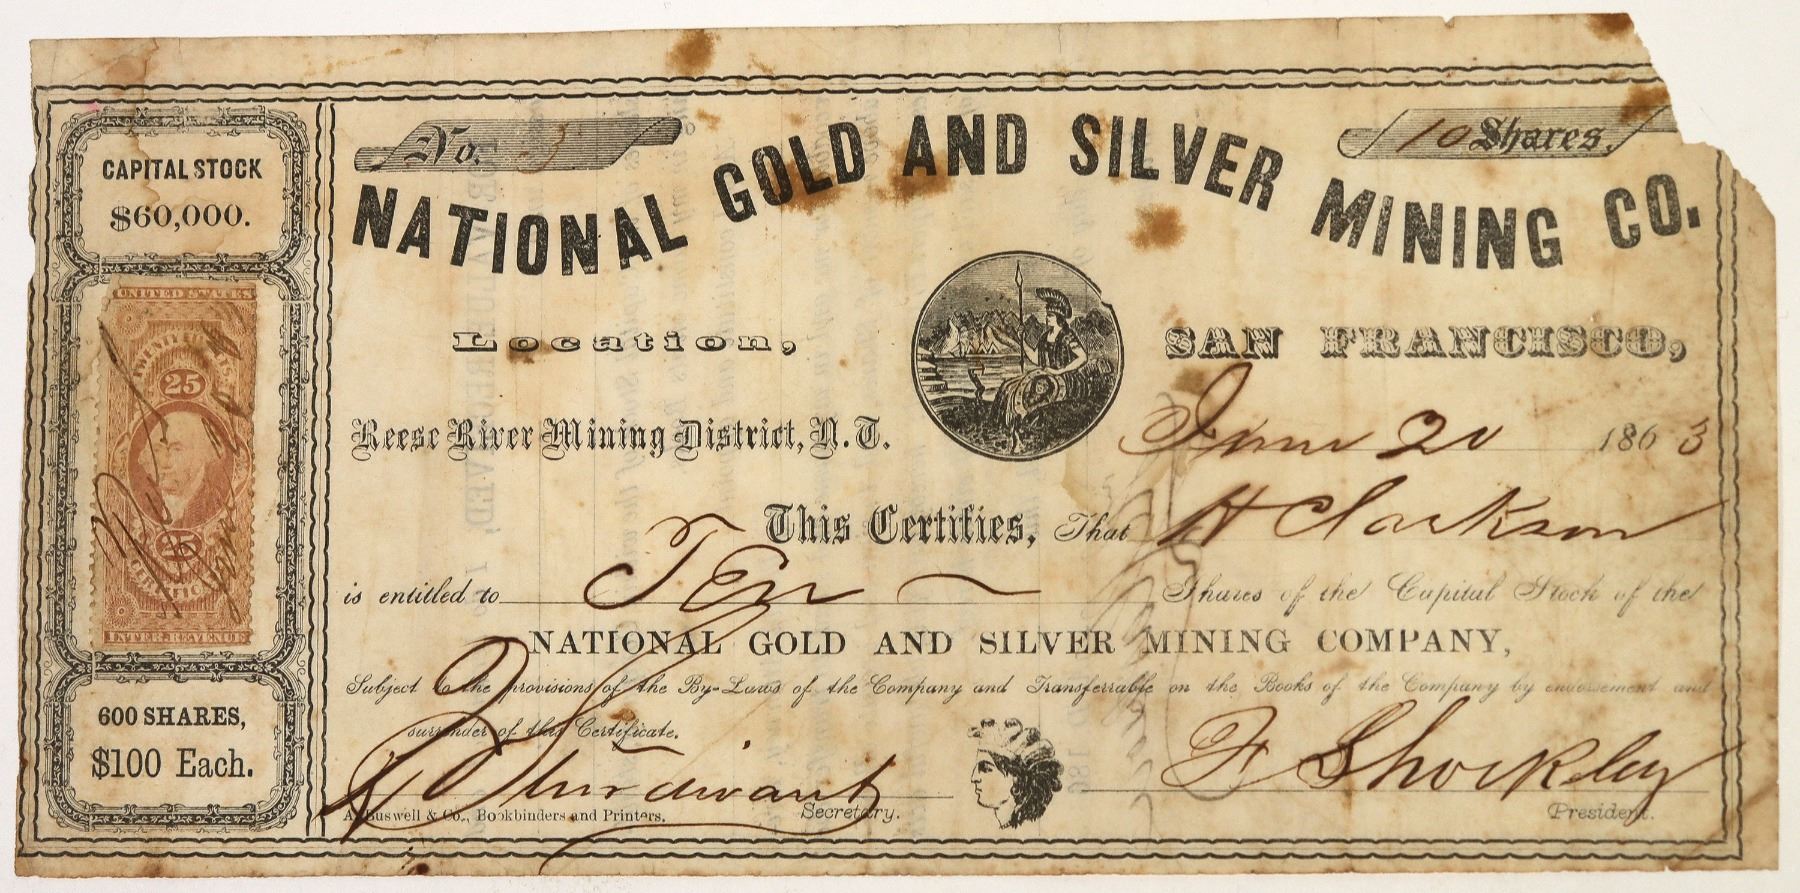 No. 3
10 Shares.
NATIONAL GOLD AND SILVER MINING CO.
CAPITAL STOCK
$60,000.
UNITED STATES
25
25
INTER. REVENUE
600 SHARES,
$100 Each.
Location,
SAN FRANCISCO,
Reese River Mining District, N. T.
June 20 1863
This Certifies, That H Clarkson
is entitled to Ten Shares of the Capital Stock of the
NATIONAL GOLD AND SILVER MINING COMPANY,
Subject to the provisions of the By-Laws of the Company and Transferrable on the Books of the Company by endorsement and
surrender of this Certificate.
Secretary.
F Shockley
President.
A. Buswell & Co., Bookbinders and Printers.